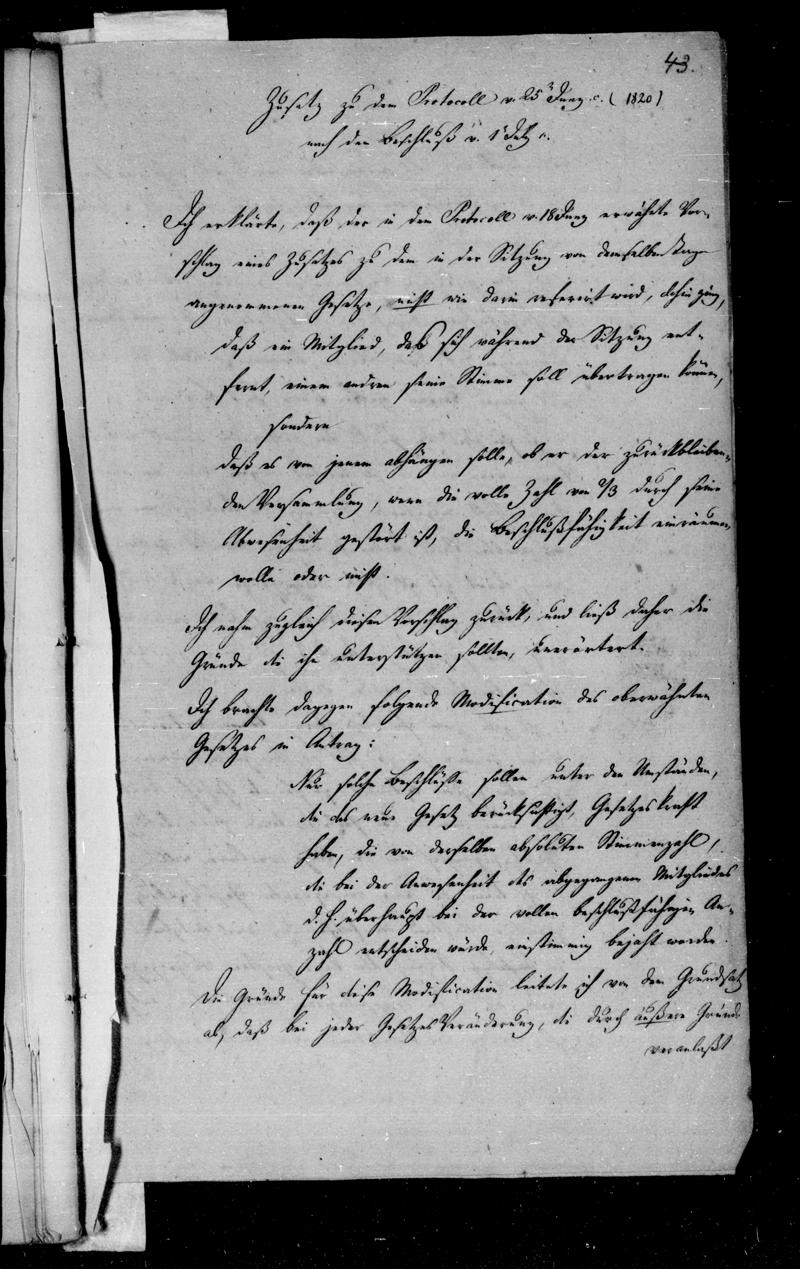 43.
Zusatz zu dem Protocoll v. 25t Juny c. (1820)
nach dem Beschluß v. 1t July c.
Ich erklärte, daß der in dem Protocoll v. 18 Juny erwähnte Vor-
schlag eines Zusatzes zu dem in der Sitzung von demselben Tage
angenommenen Gesetze, nicht wie darin referirt wird, dahin ging,
daß ein Mitglied, daß sich während der Sitzung ent-
fernt, einem andren seine Stimme soll übertragen können,
sondern
daß es von jenem abhängen solle, ob er der zurückbleiben-
den Versammlung, wenn die volle Zahl von 2/3 durch seine
Abwesenheit gestört ist, die Beschlußfähigkeit einräumen
wolle oder nicht.
Ich nahm zugleich diesen Vorschlag zurück, und ließ daher die
Gründe die ihn unterstützen sollten, unerörtert.
Ich brachte dagegen folgende Modification des oberwähnten
Gesetzes in Antrag:
Nur solche Beschlüsse sollen unter den Umständen,
die das neue Gesetz berücksichtigt, Gesetzeskraft
haben, die von derselben absoluten Stimmenzahl,
die bei der Anwesenheit des abgegangenen Mitgliedes
d. h. überhaupt bei der vollen beschlußfähigen An-
zahl entscheiden würde, einstimmig bejaht worden.
Die Gründe für diese Modification leitete ich von dem Grundsatz
ab, daß bei jeder Gesetzes Veränderung, die durch äußere Gründe
veranlaßt